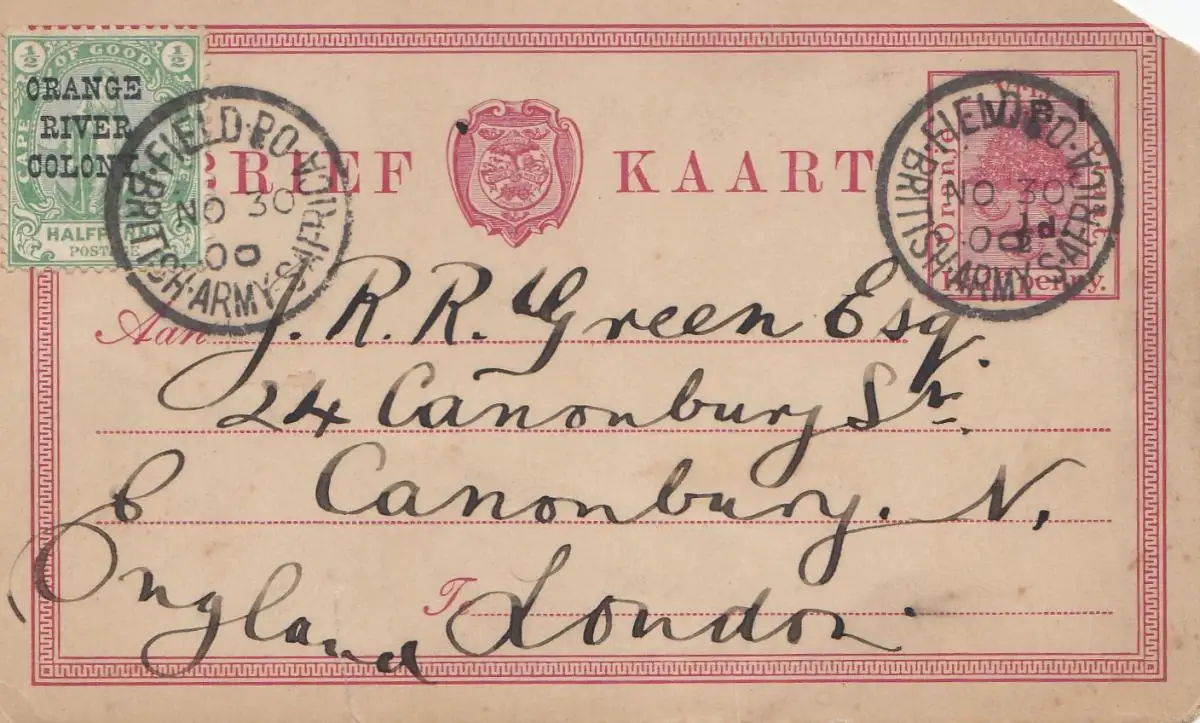 ½ OF GOOD ½
CAPE
ORANGE
RIVER
COLONY
HALFPENNY
POSTAGE
FIELD·PO·
BRITISH·ARMY S·AFRICA
NO 30
00
BRIEF KAART
FIELD PO·
BRITISH·ARMY S·AFRICA
NO 30
00
Vrij
Oranje
½d.
Half penny.
Aan J. R. R. Green Esq.
24 Canonbury St.
Canonbury. N.
T London
England